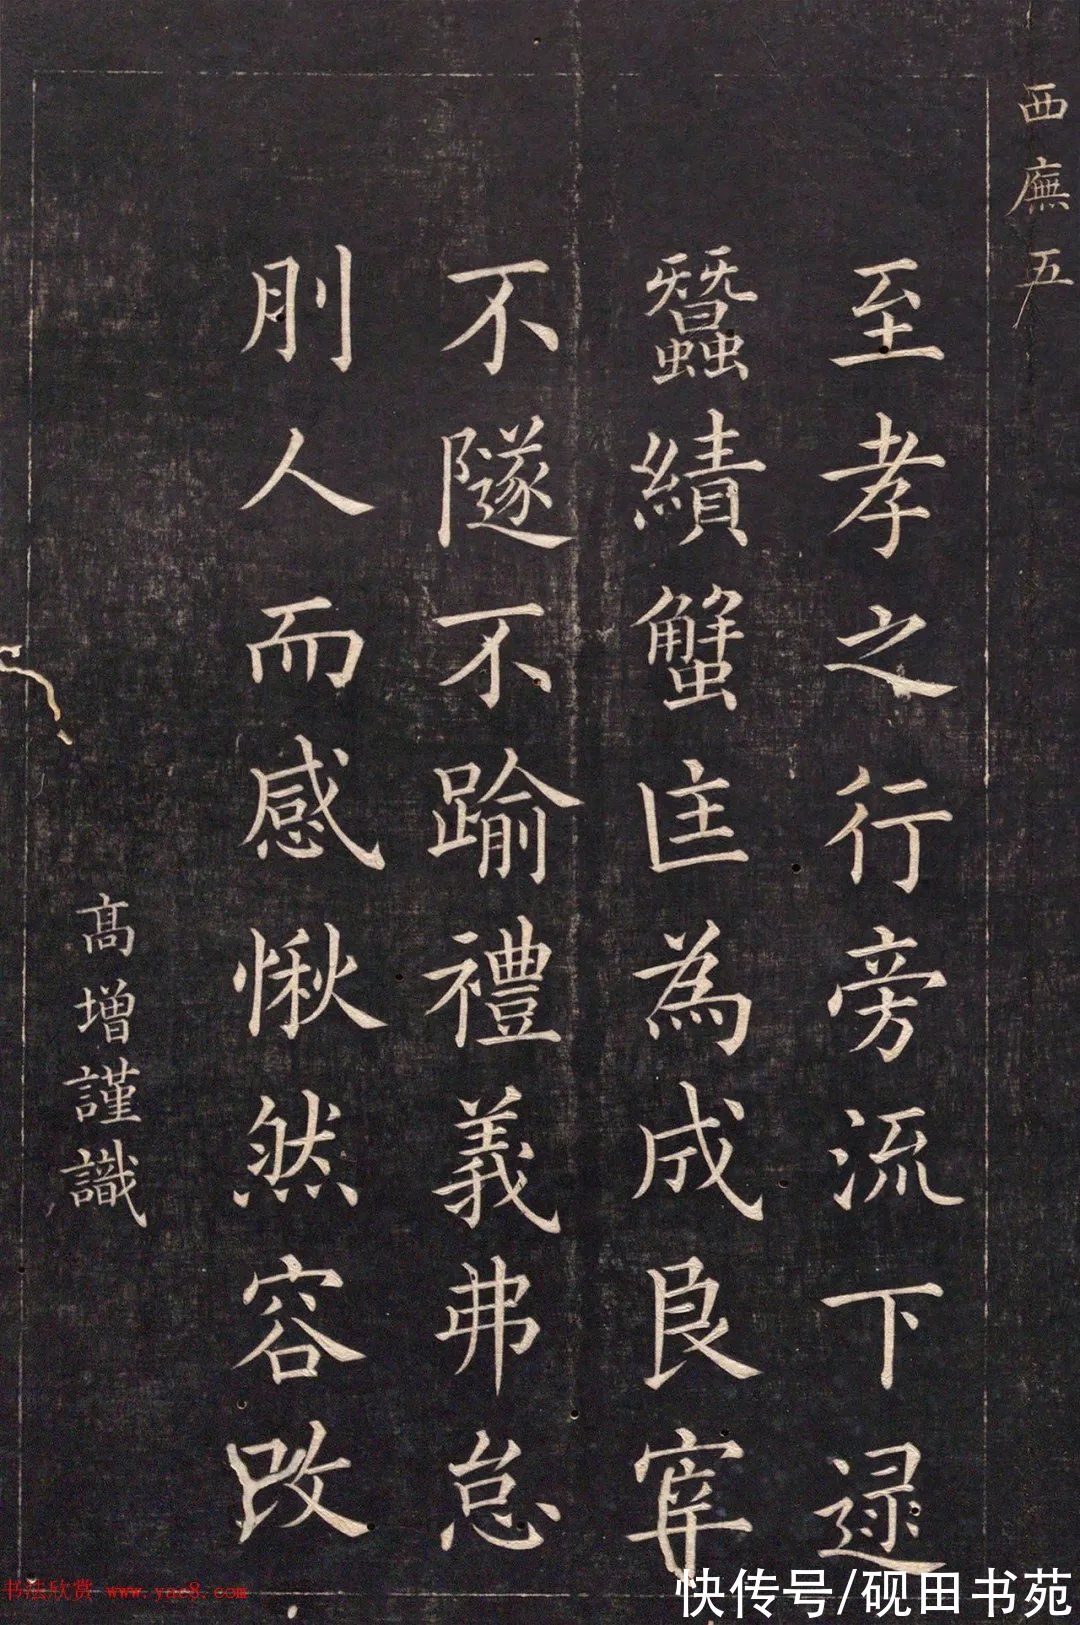 西廡五
至孝之行旁流下逯
蠶績蟹匡為成良宰
不隧不踰禮義弗怠
刖人而感愀然容改
高增謹識
书法欣赏 www.yac8.com
快传号/砚田书苑